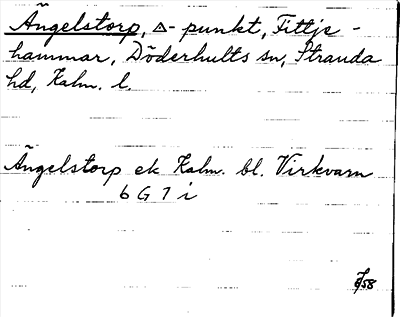 Ängelstorp, △-punkt, Fittje-
hammar, Döderhults sn, Stranda
hd, Kalm. l.
Ängelstorp ek Kalm. bl. Virkvarn
6 G 7 i
58